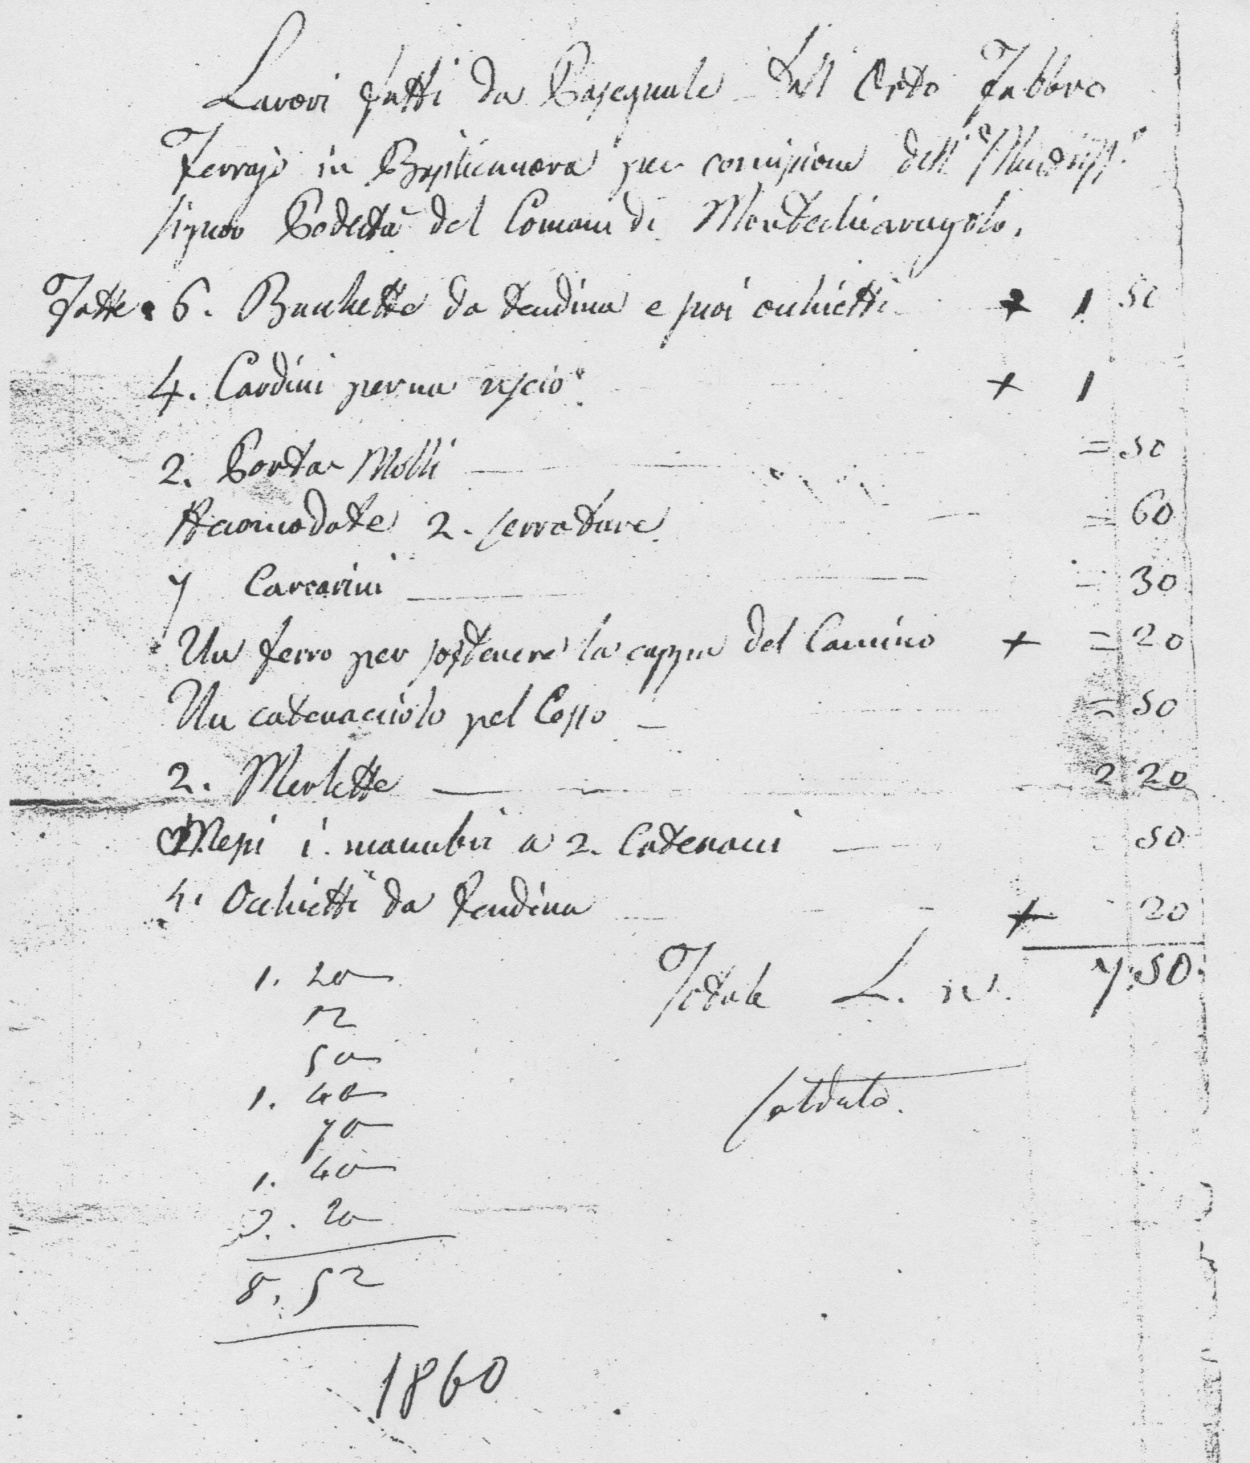 Lavori fatti da Pasequale Dall Orto Fabbro
Ferrajo in Basilicanova per comisione dell'
signor Podestà del Comune di Montechiarugolo.
Fatte 6. Bachette da tendina e suoi ochietti + 1 50
4. Cardini per un uscio + 1
2. Porta Molli = 50
Acomodate 2. serrature = 60
7 Carcarini = 30
Un ferro per sostenere la cappa del Camino + = 20
Un catenacciolo pel Cesso = 50
2. Merlette 2 20
Messi i manubri a 2. Catenacci 50
4. Ochietti da tendina + 20
Totale L. n. 7.50
1. 20
12
50
1. 40
70
1. 40
3. 20
8, 52
saldato.
1860